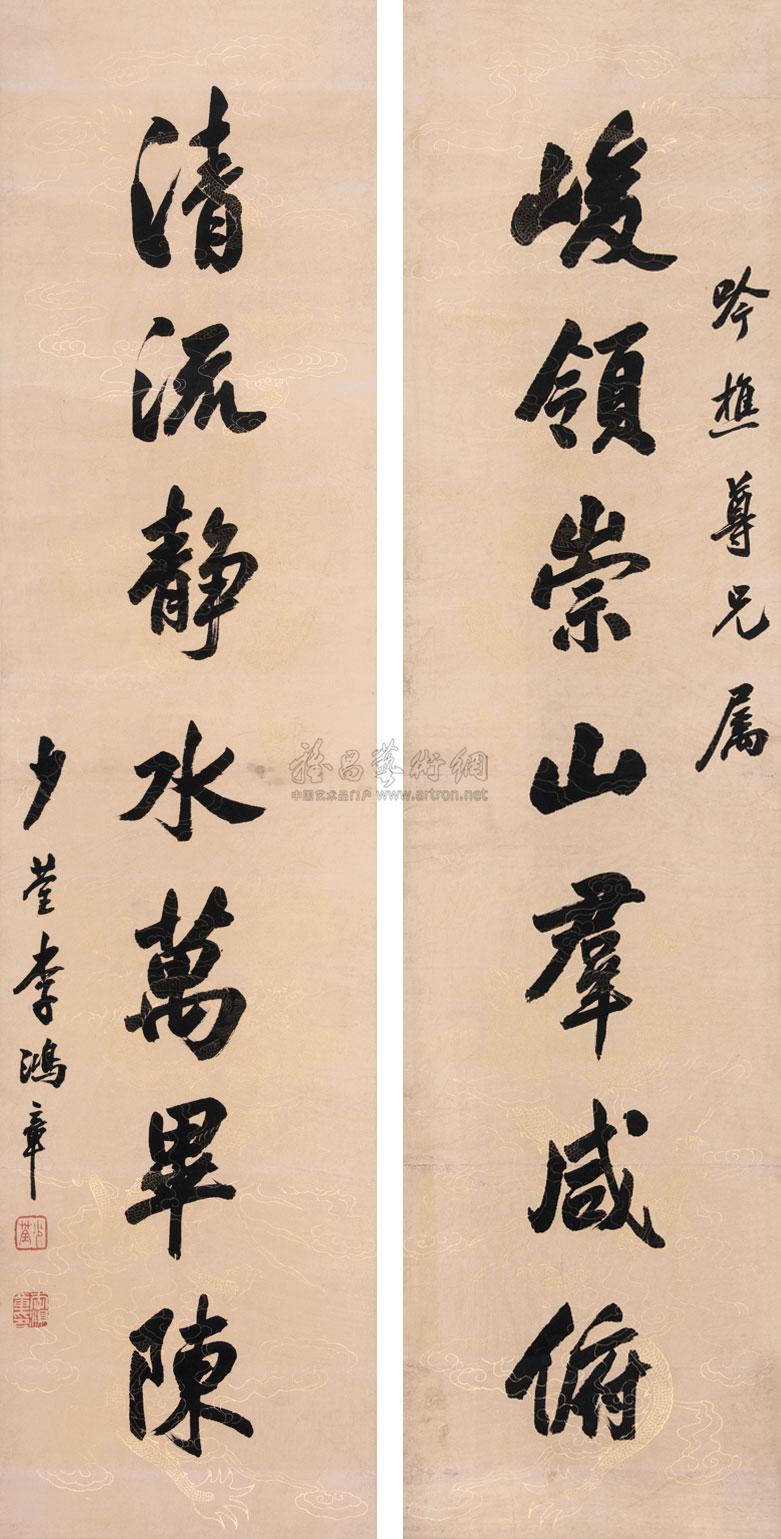 吟樵尊兄属
峻領崇山羣咸俯
清流静水萬畢陳
少荃李鴻章
少荃
雅昌藝術網
中国艺术品门户 www.artron.net